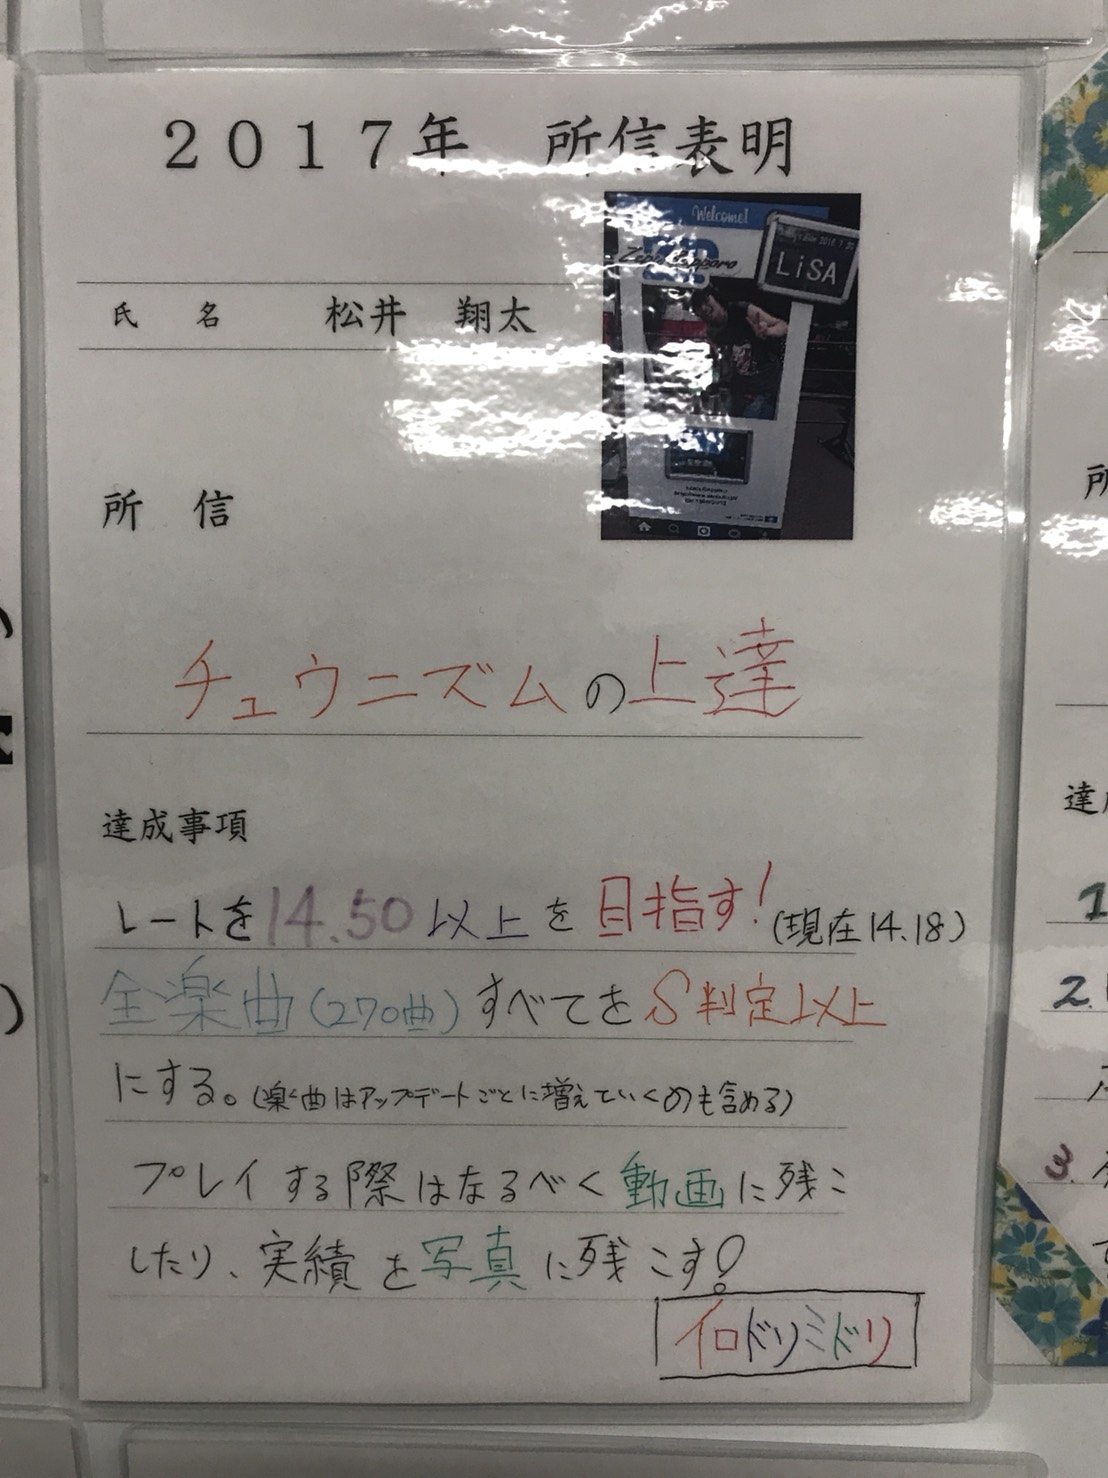 2017年　所信表明
Welcome!
Zepp Sapporo
LiSA
氏　名　松井　翔太
所　信
チュウニズムの上達
達成事項
レートを14.50以上を目指す!(現在14.18)
全楽曲(270曲)すべてをS判定以上
にする。(楽曲はアップデートごとに増えていくのも含める)
プレイする際はなるべく動画に残こ
したり、実績を写真に残こす!
イロドリミドリ
所
達
1
2.
3.